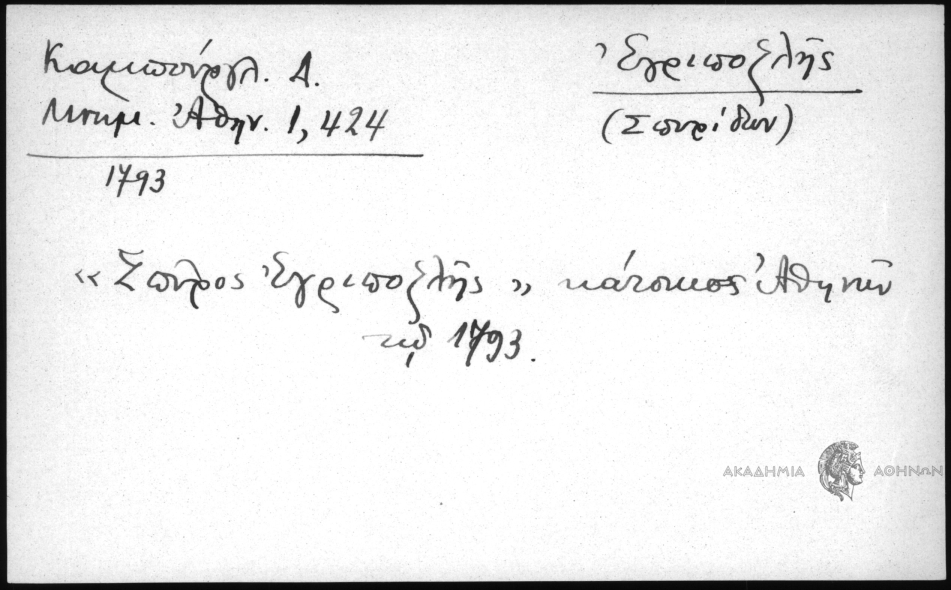 Καμπούργλ. Δ.
Μνημ. Ἀθην. 1, 424
1793
Ἐγριποζλῆς
(Σπυρίδων)
«Σπῦρος Ἐγριποζλῆς» κάτοικος Ἀθηνῶν
τῷ 1793.
ΑΚΑΔΗΜΙΑ ΑΘΗΝΩΝ